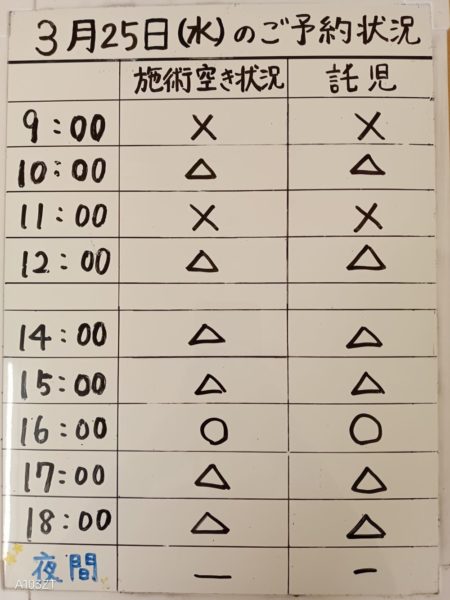 3月25日(水)のご予約状況
施術空き状況 託児
9:00 × ×
10:00 △ △
11:00 × ×
12:00 △ △
14:00 △ △
15:00 △ △
16:00 ○ ○
17:00 △ △
18:00 △ △
夜間 — —
A103Z1